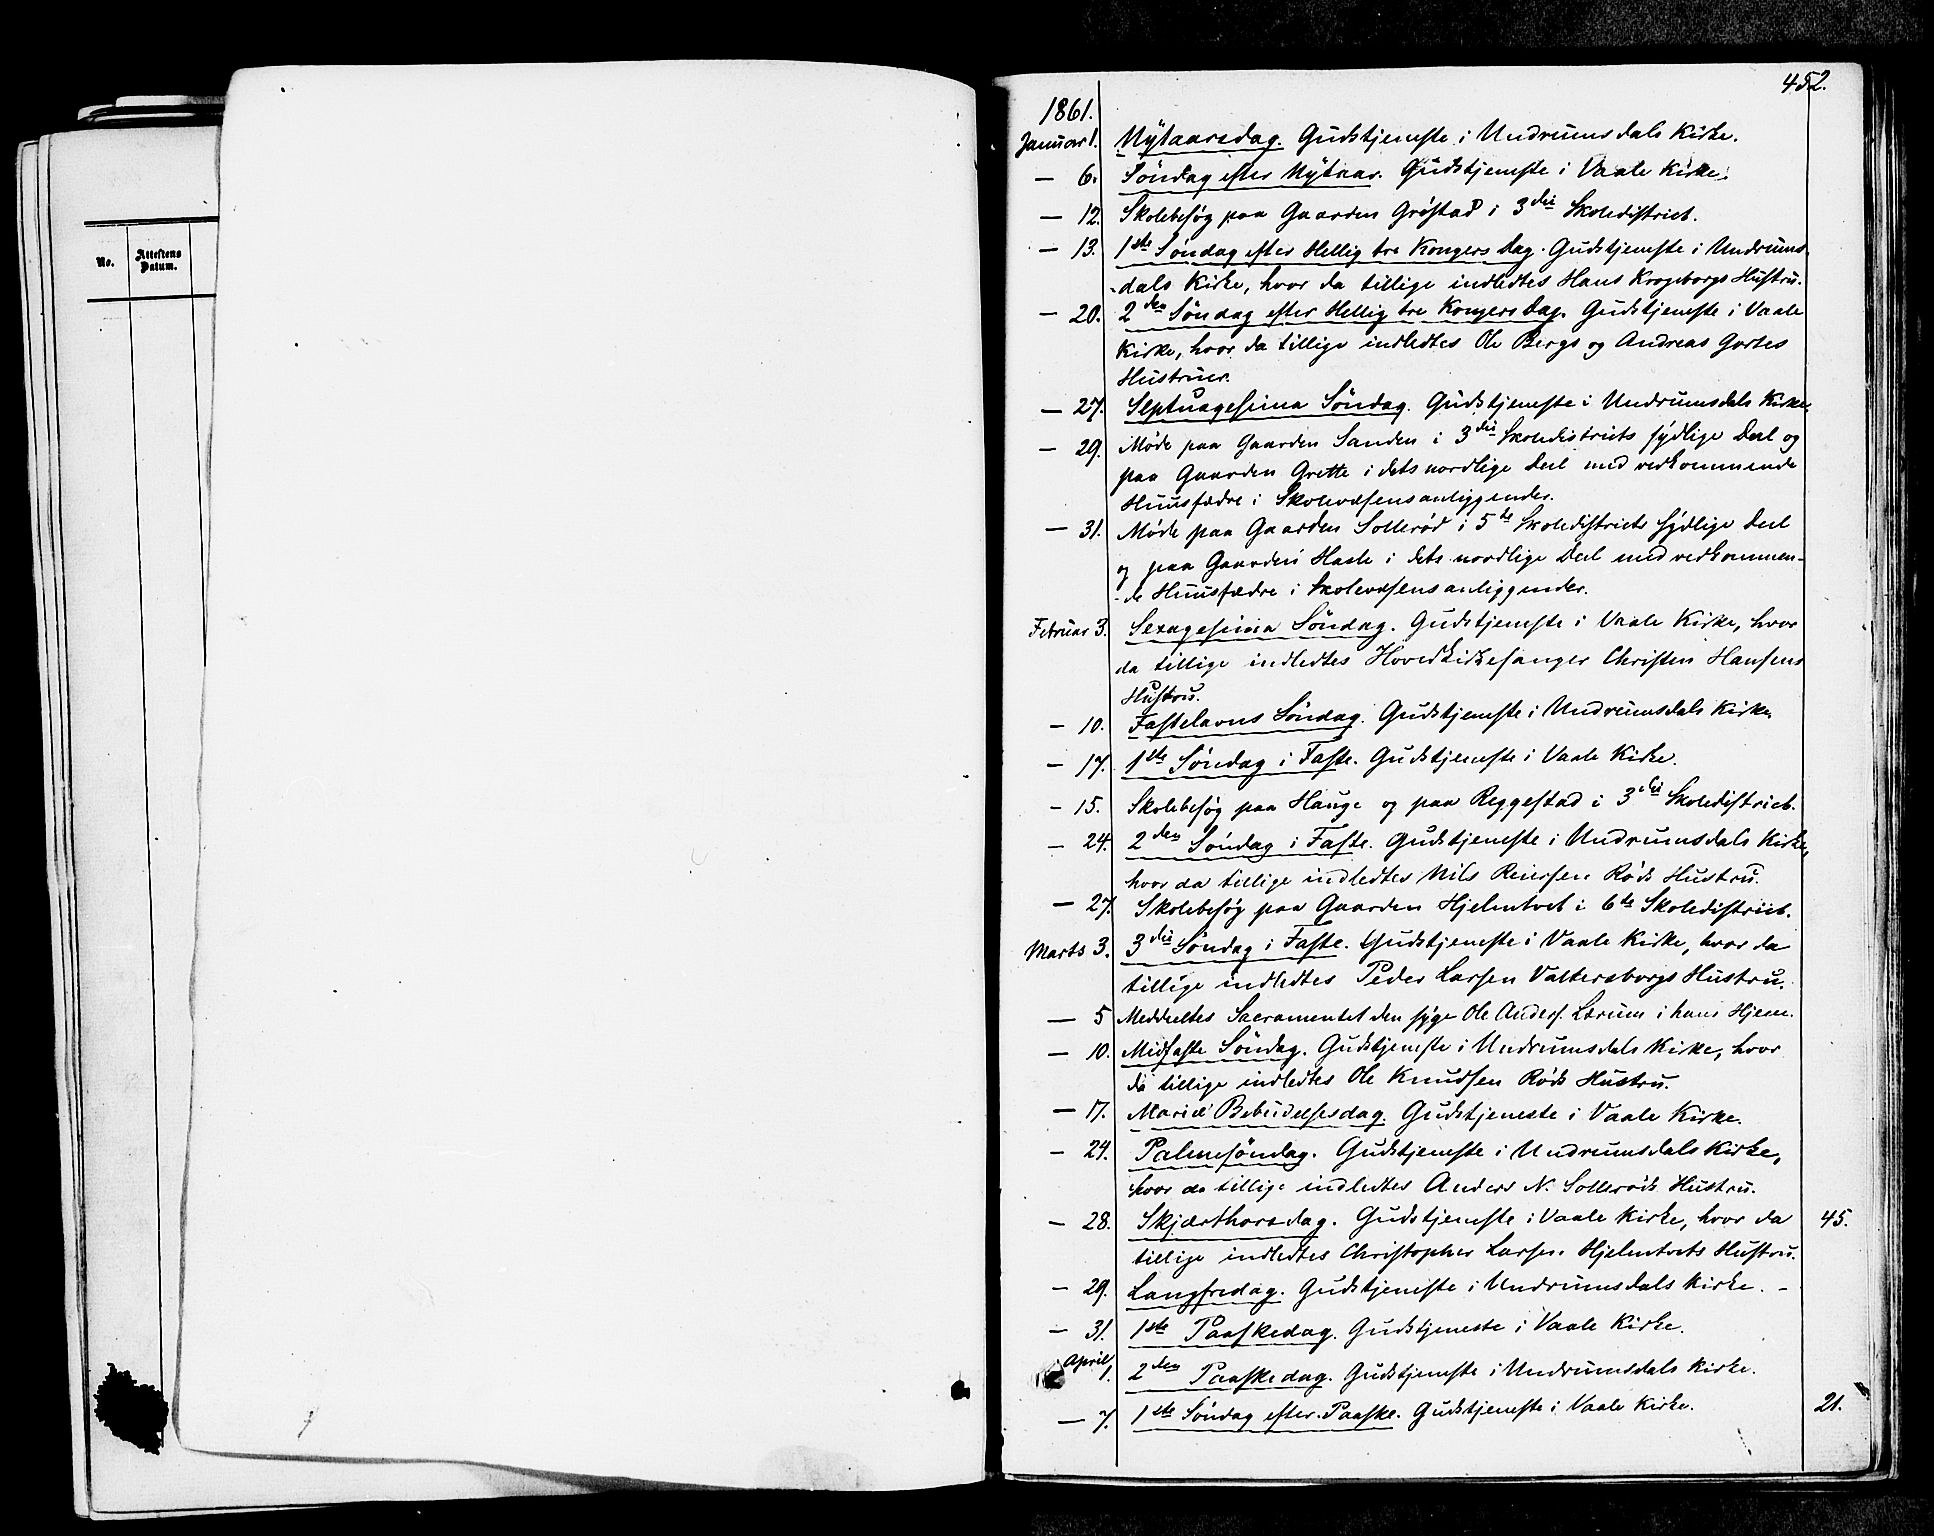 No. Attestens Datum.
452.
1861.
Januar 1. Nytaarsdag. Gudstjeneste i Undrumsdals Kirke.
— 6. Søndag efter Nytaar. Gudstjeneste i Vaale Kirke.
— 12. Skolebesøg paa Gaarden Grøstad i 3die Skoledistrict.
— 13. 1ste Søndag efter Hellig tre Kongers Dag. Gudstjeneste i Undrums-
-dals Kirke, hvor da tillige indledtes Hans Krogeborgs Hustru.
— 20. 2den Søndag efter Hellig tre Kongers Dag. Gudstjeneste i Vaale
Kirke, hvor da tillige indledtes Ole Bergs og Andreas Gortes
Hustruer.
— 27. Septuagesima Søndag. Gudstjeneste i Undrumsdals Kirke.
— 29. Møde paa Gaarden Sanden i 3die Skoledistricts sydlige Deel og
paa Gaarden Grette i dets nordlige Deel med vedkommende
Huusfædre i Skolevæsensanliggender.
— 31. Møde paa Gaarden Sollerød i 5te Skoledistricts sydlige Deel
og paa Gaarden Hasle i dets nordlige Deel med vedkommen-
-de Huusfædre i Skolevæsensanliggender.
Februar 3. Sexagesima Søndag. Gudstjeneste i Vaale Kirke, hvor
da tillige indledtes Hovedkirkesanger Christen Hansens
Hustru.
— 10. Fastelavns Søndag. Gudstjeneste i Undrumsdals Kirke.
— 17. 1ste Søndag i Faste. Gudstjeneste i Vaale Kirke.
— 15. Skolebesøg paa Hauge og paa Reggestad i 3die Skoledistrict.
— 24. 2den Søndag i Faste. Gudstjeneste i Undrumsdals Kirke,
hvor da tillige indledtes Nils Reiersen Røds Hustru.
— 27. Skolebesøg paa Gaarden Hjelmtvet i 6te Skoledistrict.
Marts 3. 3die Søndag i Faste. Gudstjeneste i Vaale Kirke, hvor da
tillige indledtes Peder Larsen Valtersborgs Hustru.
— 5 Meddeeltes Sacramentet den syge Ole Anders. Lærum i hans Hjem.
— 10. Midfaste Søndag. Gudstjeneste i Undrumsdals Kirke, hvor
da tillige indledtes Ole Knudsen Røds Hustru.
— 17. Mariæ Bebudelsesdag. Gudstjeneste i Vaale Kirke.
— 24. Palmesøndag. Gudstjeneste i Undrumsdals Kirke,
hvor da tillige indledtes Anders N. Sollerøds Hustru.
— 28. Skjærthorsdag. Gudstjeneste i Vaale Kirke, hvor da 45.
tillige indledtes Christopher Larsen Hjelmtvets Hustru.
— 29. Langfredag. Gudstjeneste i Undrumsdals Kirke. -
— 31. 1ste Paaskedag. Gudstjeneste i Vaale Kirke.
April 1. 2den Paaskedag. Gudstjeneste i Undrumsdals Kirke.
— 7. 1ste Søndag efter Paaske. Gudstjeneste i Vaale Kirke. 21.